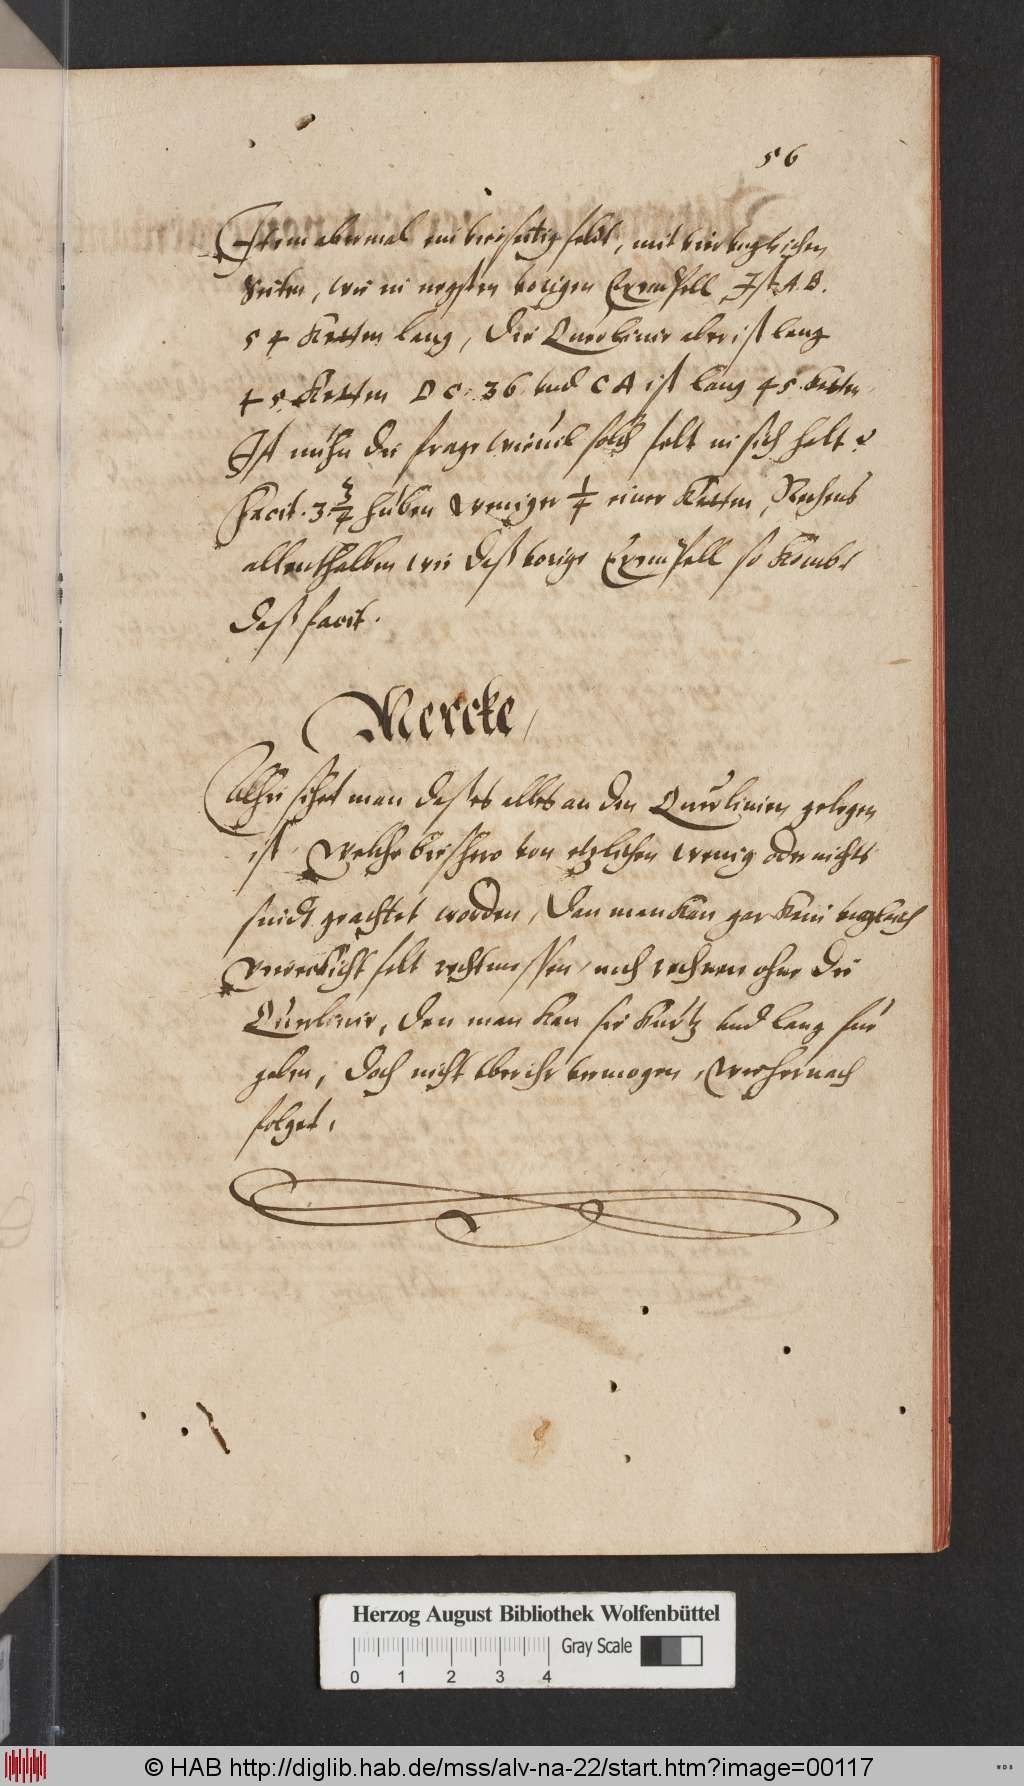 56
Item abermal ein vierseitig feldt, mit vier vngleichen
Seiten, wie in negsten vorigen Exempell, Ist A. B.
54 Ketten lang, die Querlinie aber ist lang
45 Ketten D C. 36 vnd C A ist lang 45. Ketten
Ist nuhn die frage wieuil solch felt in sich helt?
Facit. 3 3/4 huben weniger 1/4 einer Ketten, Rechens
allenthalben wie daß vorige Exempell so kombt
daß facit.
Mercke,
Alhie sihet man daß es alles an den Querlinien gelegen
ist, Welche bießhero von etzlichen wenig oder nichts
geachtet worden, dan man kan gar kein vngleich
viereckicht felt rechtmessen, noch rechnen ohne die
Querlinie, den man kan sie kurtz vnd lang für
geben, doch nicht vber ihr vermogen, wie hernach
folget,
Herzog August Bibliothek Wolfenbüttel
0 1 2 3 4
Gray Scale
© HAB http://diglib.hab.de/mss/alv-na-22/start.htm?image=00117